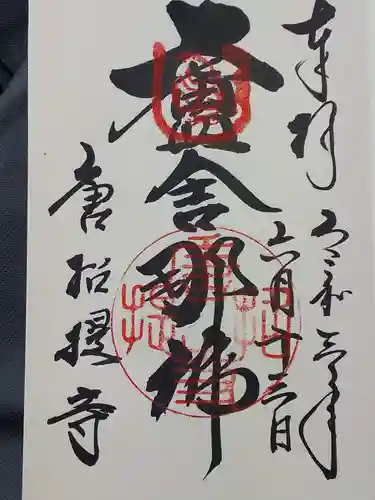 奉拝
令和三年
六月十三日
盧舎那佛
唐招提寺